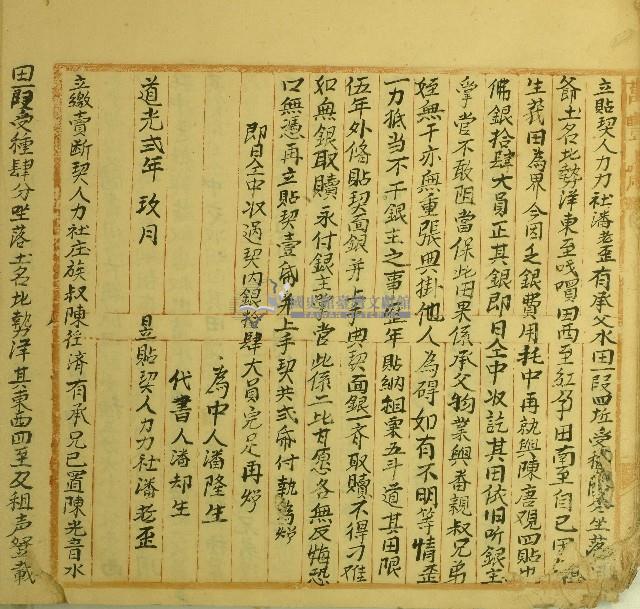 立貼契人力力社潘老歪有承父水田一段四坵受種陸分坐落
爺土名北勢洋東至戎嗊田西至紅孕田南至自己田
生莪田為界今因乏銀費用托中再就與陳唐观四貼出
佛銀拾肆大員正其銀即日仝中收訖其田依旧听銀主
掌管不敢阻當保此田果係承父物業與番親叔兄弟
姪無干亦無重張典掛他人為碍如有不明等情歪
一力抵当不干銀主之事年貼納租粟五斗道其田限
伍年外俻貼契面銀并上典契面銀一斉取贖不得刁难
如無銀取贖永付銀主掌管此係二比甘愿各無反悔恐
口無憑再立貼契壹帋并上手契共弍帋付執為炤
即日仝中收过契内銀拾肆大員完足再炤
為中人潘隆生
代書人潘却生
道光弍年玖月 日立貼契人力力社潘老歪
立繳賣断契人力社庄族叔陳徃済有承兄已置陳光音水
田一段受種肆分坐落土名北勢洋其東西四至及租声登載